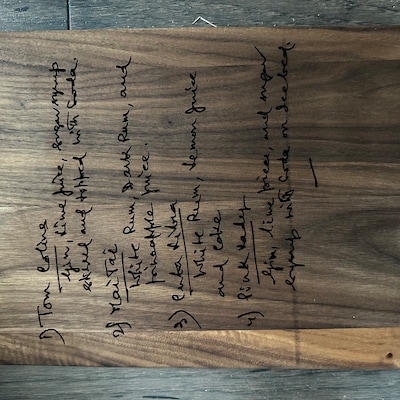 1) Tom Coline
Gin, Lime juice, sugar syrup
and topped with Soda.
2) Mai Tai
White Rum, Dark Rum, and
pineapple juice.
3) Cuba Libra
White Rum, Lemon juice
and Coke
4) Pink Lady
Gin, lime juice, and sugar
syrup with Soda on Ice bed.